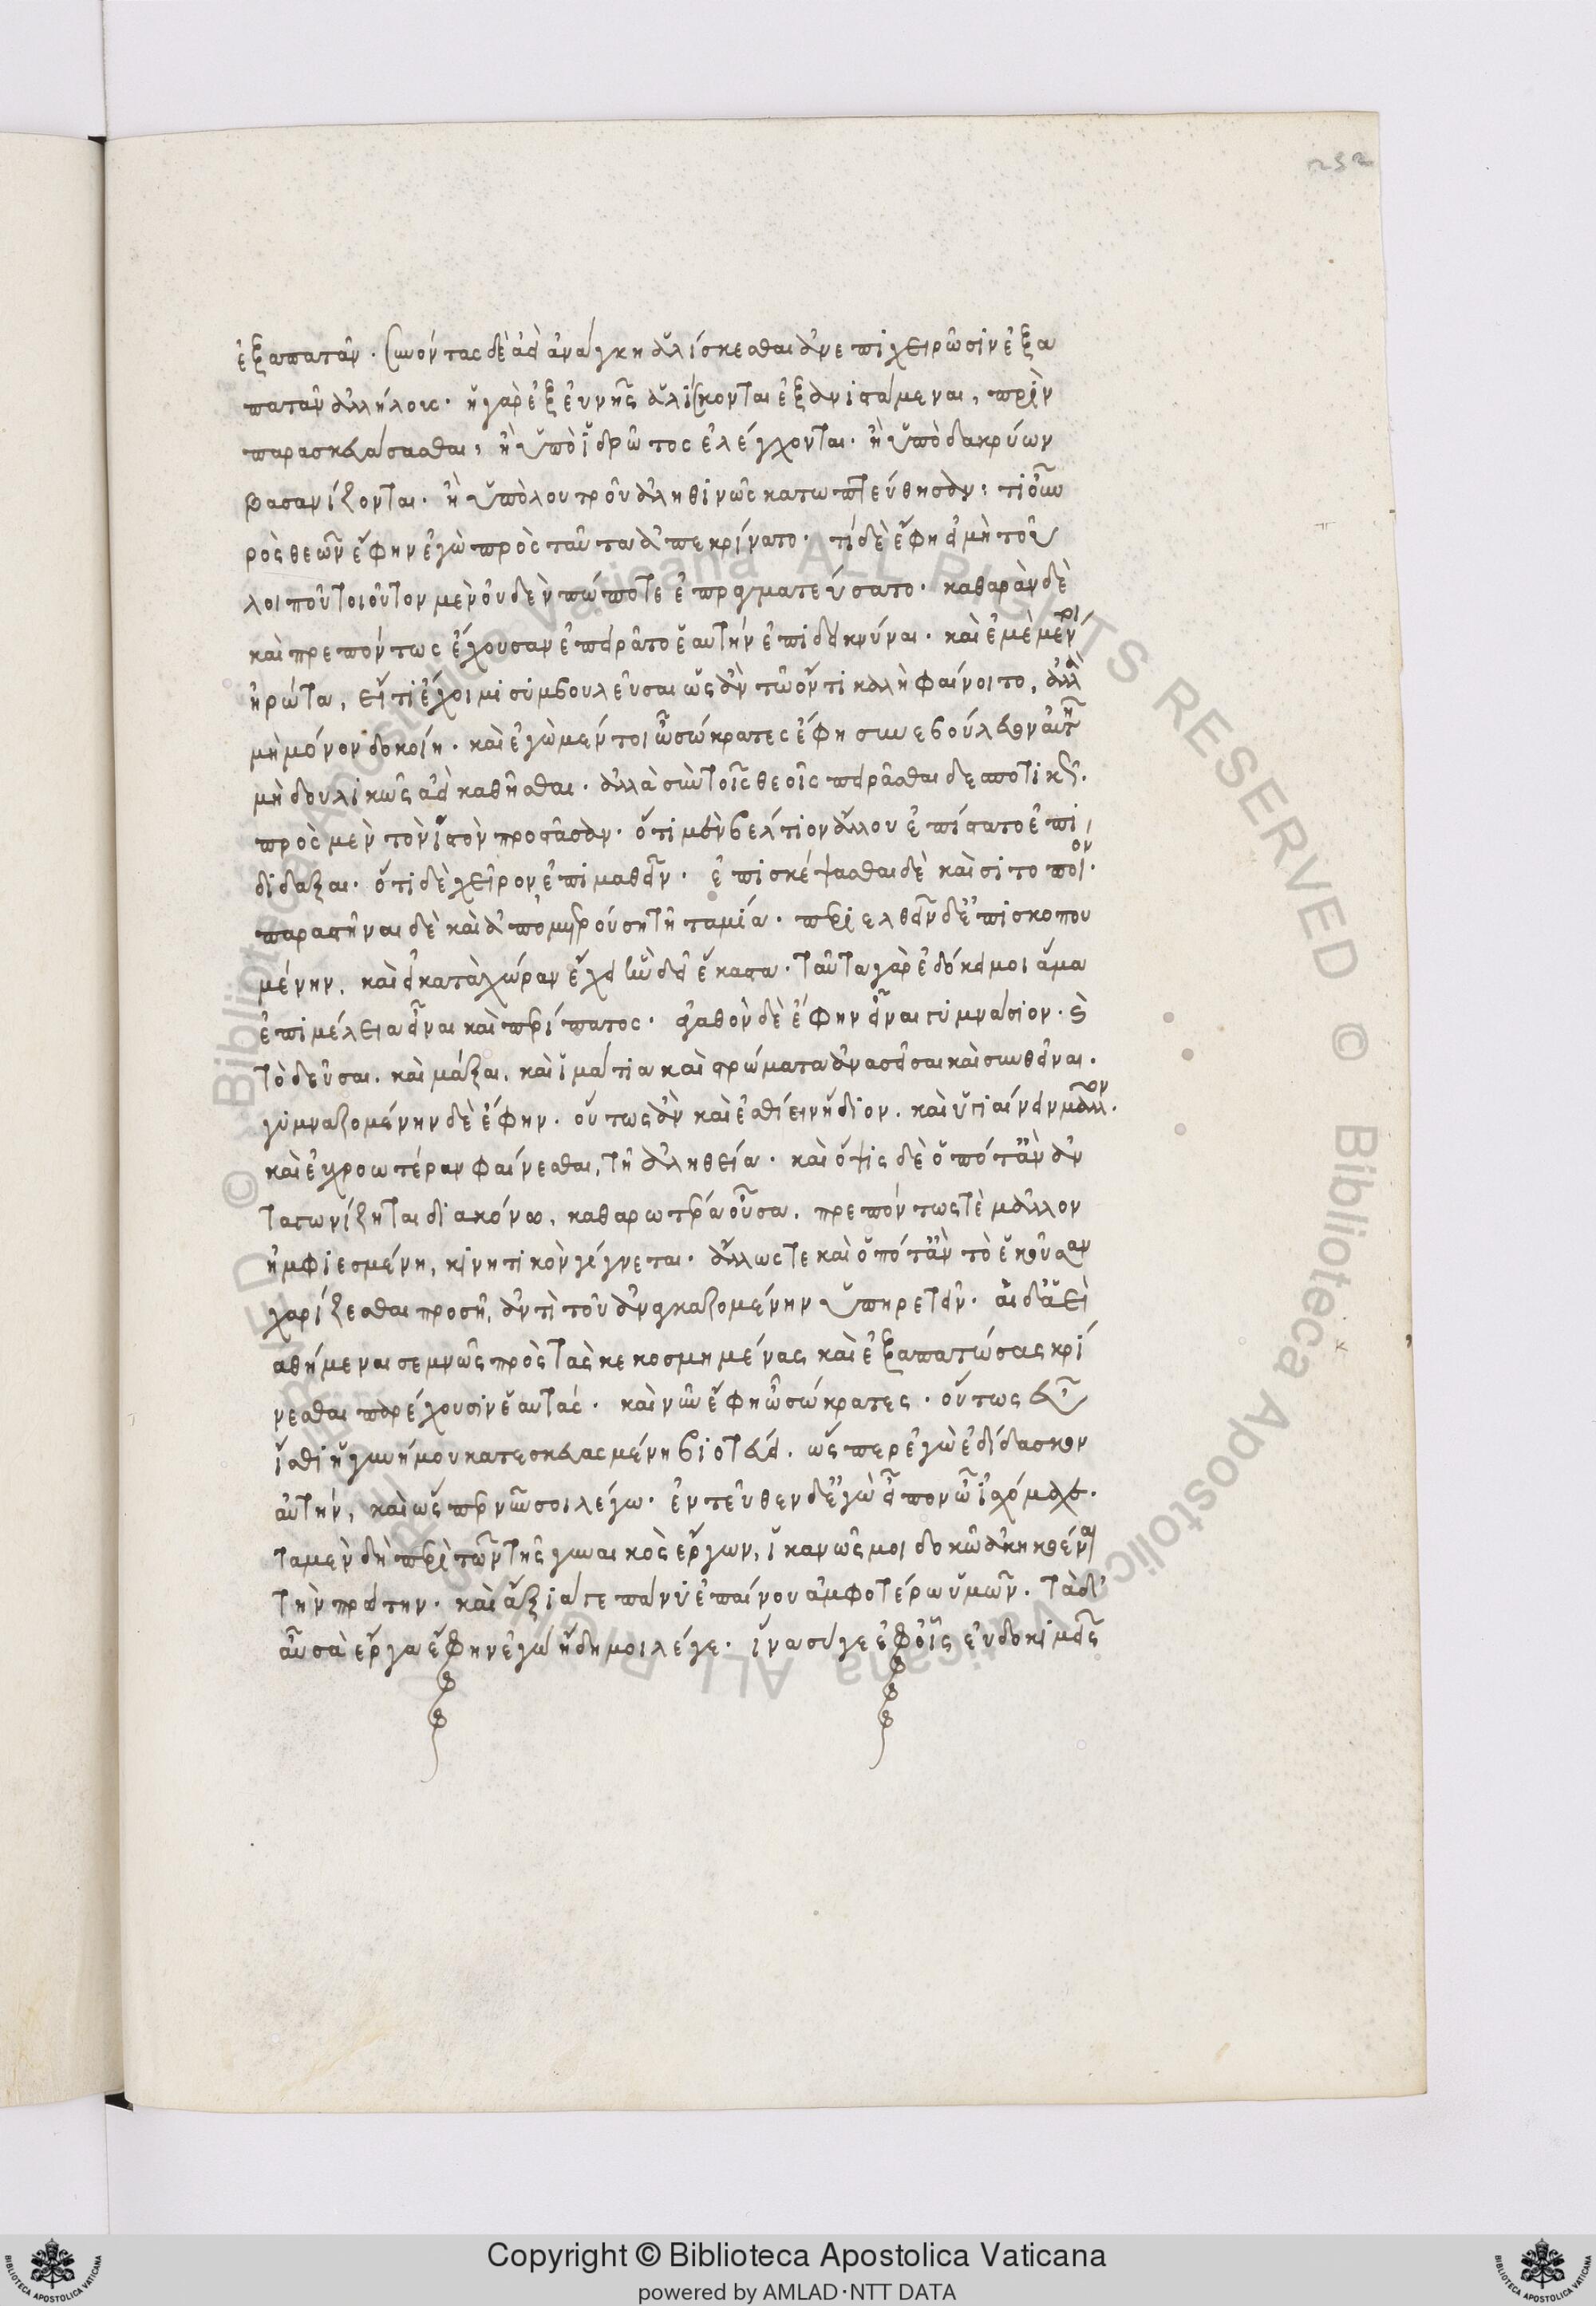 252
ἐξαπατᾶν. συνόντας δὲ ἀεὶ ἀνάγκη ἁλίσκεσθαι ἂν ἐπιχειρῶσιν ἐξα
πατᾶν ἀλλήλους. ἢ γὰρ ἐξ εὐνῆς ἁλίσκονται ἐξανιστάμεναι, πρὶν
παρασκευάσασθαι, ἢ ὑπὸ ἱδρῶτος ἐλέγχονται. ἢ ὑπὸ δακρύων
βασανίζονται. ἢ ὑπὸ λουτροῦ ἀληθινῶς κατωπτεύθησαν. τί οὖν
πρὸς θεῶν ἔφην ἐγὼ πρὸς ταῦτα ἀπεκρίνατο. τί δὲ ἔφη εἰ μὴ τοῦ
λοιποῦ τοιοῦτον μὲν οὐδὲν πώποτε ἐπραγματεύσατο. καθαρὰν δὲ
καὶ πρεπόντως ἔχουσαν ἐπειρᾶτο ἑαυτὴν ἐπιδεικνύναι. καὶ ἐμὲ μέντοι
ἠρώτα, εἴ τι ἔχοιμι συμβουλεῦσαι ὡς ἂν τῷ ὄντι καλὴ φαίνοιτο, ἀλλὰ
μὴ μόνον δοκοίη. καὶ ἐγὼ μέντοι ὦ σώκρατες ἔφη συνεβούλευον αὐτῇ
μὴ δουλικῶς ἀεὶ καθῆσθαι. ἀλλὰ σὺν τοῖς θεοῖς πειρᾶσθαι δεσποτικῶς.
πρὸς μὲν τὸν ἱστὸν προστᾶσαν. ὅτι μὲν βέλτιον ἄλλου ἐπίστατο ἐπι
διδάξαι. ὅτι δὲ χεῖρον ἐπιμαθεῖν. ἐπισκέψασθαι δὲ καὶ σιτοποιόν.
παραστῆναι δὲ καὶ ἀπομετρούσῃ τῇ ταμίᾳ. περιελθεῖν δ' ἐπισκοπου
μένην, καὶ εἰ κατὰ χώραν ἔχει ἣν δεῖ ἕκαστα. ταῦτα γὰρ ἐδόκει μοι ἅμα
ἐπιμέλεια εἶναι καὶ περίπατος. ἀγαθὸν δὲ ἔφην εἶναι γυμνάσιον. καὶ
τὸ δεῦσαι. καὶ μάξαι. καὶ ἱμάτια καὶ στρώματα ἀνασεῖσαι καὶ συνθεῖναι.
γυμναζομένην δὲ ἔφην. οὕτως ἂν καὶ ἐσθίειν ἥδιον. καὶ ὑγιαίνειν μᾶλλον.
καὶ εὐχροωτέραν φαίνεσθαι, τῇ ἀληθείᾳ. καὶ ὄψις δὲ ὁπόταν ἀν
ταγωνίζηται διακόνῳ, καθαρωτέρα οὖσα, πρεπόντως τὲ μᾶλλον
ἠμφιεσμένη, κινητικὸν γίγνεται. ἄλλως τε καὶ ὁπόταν τὸ ἑκοῦσαν
χαρίζεσθαι προσῇ, ἀντὶ τοῦ ἀναγκαζομένην ὑπηρετεῖν. αἱ δ' ἀεὶ
αθήμεναι σεμνῶς πρὸς τὰς κεκοσμημένας καὶ ἐξαπατώσας κρί
νεσθαι παρέχουσιν ἑαυτάς. καὶ νῦν ἔφη ὦ σώκρατες. οὕτως εὖ
ἴσθι ἡ γυνή μου κατεσκευασμένη βιοτεύει. ὥσπερ ἐγὼ ἐδίδασκον
αὐτήν, καὶ ὥσπερ νῦν σοι λέγω. ἐντεῦθεν δ' ἐγὼ εἶπον ὦ ἰσχόμαχε.
τὰ μὲν δὴ περὶ τῶν τῆς γυναικὸς ἔργων, ἱκανῶς μοι δοκῶ ἀκηκοέναι
τὴν πρώτην. καὶ ἄξιά γε πάνυ ἐπαίνου ἀμφοτέρων ὑμῶν. τὰ δ'
αὖ σὰ ἔργα ἔφην ἐγὼ ἤδη μοι λέγε. ἵνα σύ γε ἐφ' οἷς εὐδοκιμεῖς
© Biblioteca Apostolica Vaticana ALL RIGHTS RESERVED © Biblioteca Apostolica Vaticana ALL RIGHTS RESERVED
Copyright © Biblioteca Apostolica Vaticana
powered by AMLAD·NTT DATA
BIBLIOTECA APOSTOLICA VATICANA
BIBLIOTECA APOSTOLICA VATICANA